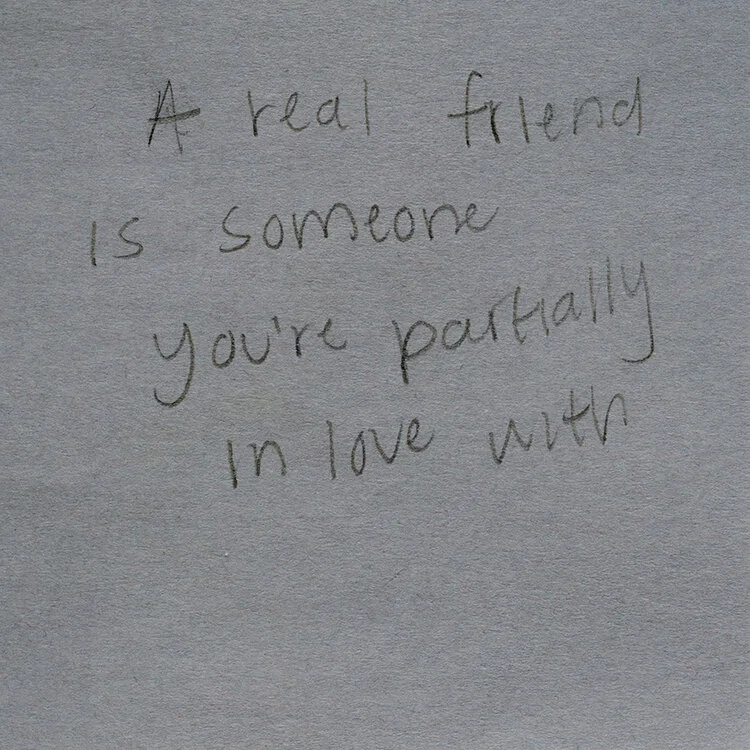 A real friend
is someone
you're partially
in love with